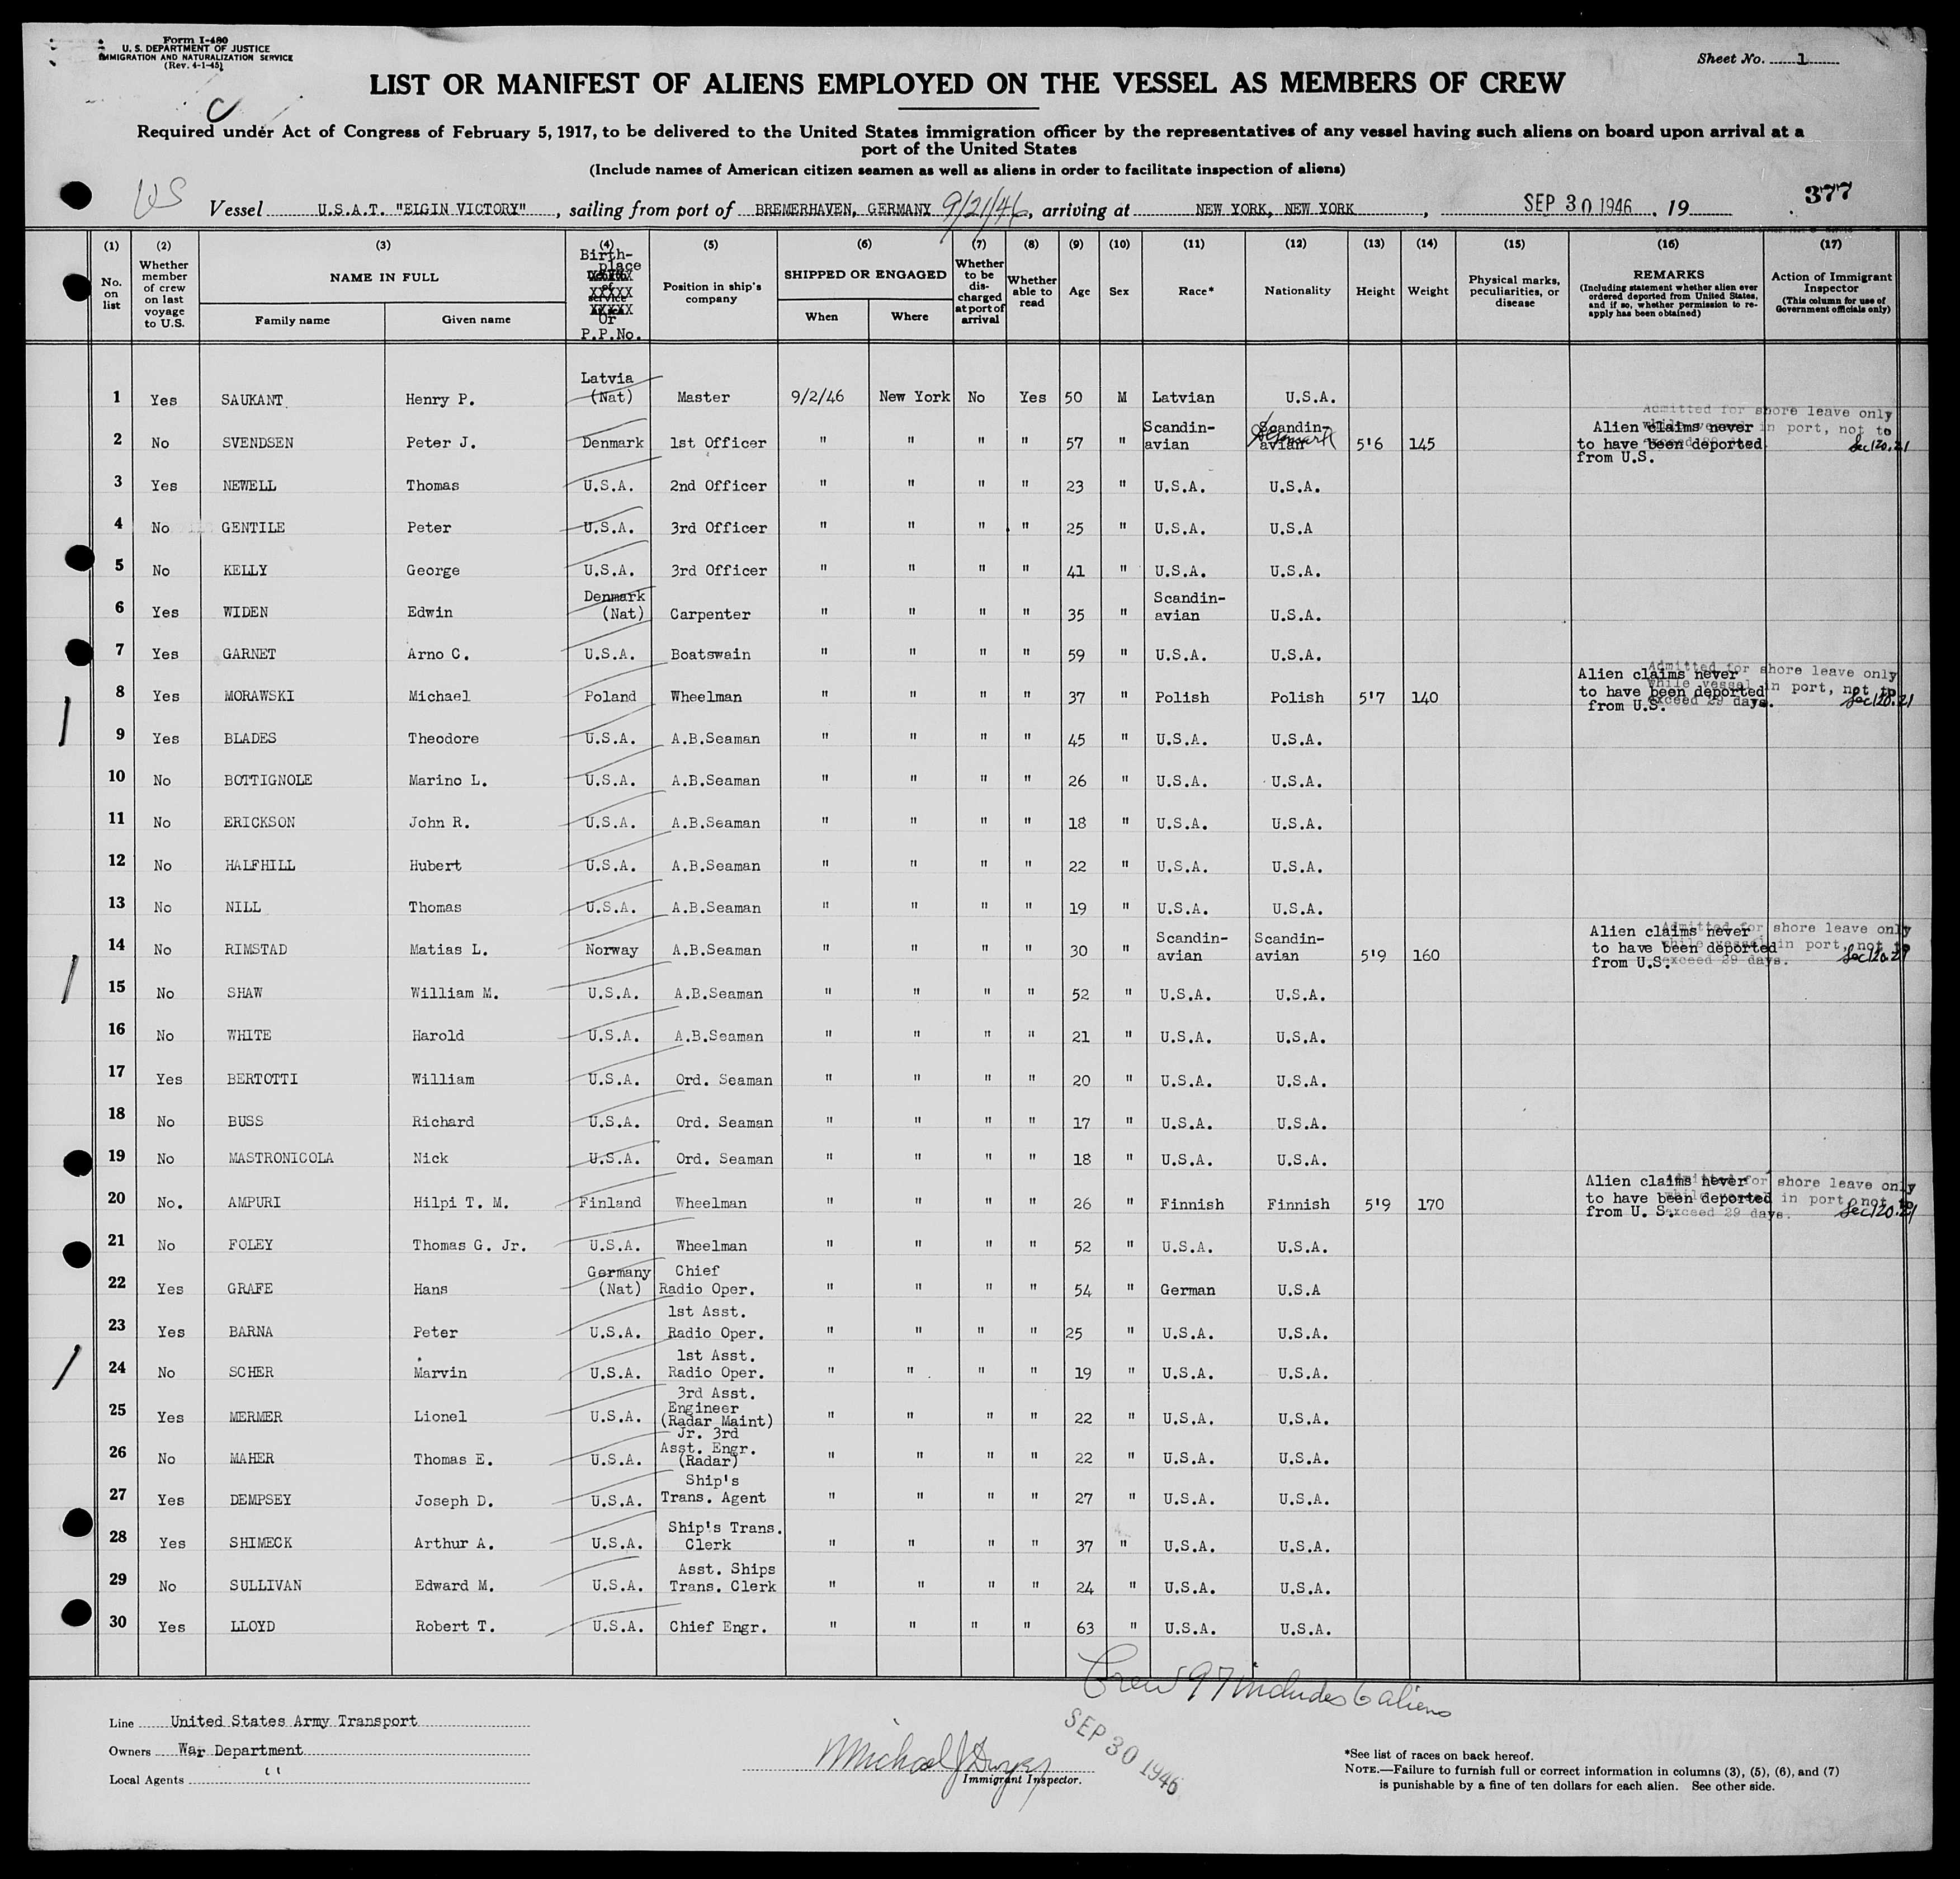 Form I-480
U. S. DEPARTMENT OF JUSTICE
IMMIGRATION AND NATURALIZATION SERVICE
(Rev. 4-1-45)
Sheet No. 1
LIST OR MANIFEST OF ALIENS EMPLOYED ON THE VESSEL AS MEMBERS OF CREW
Required under Act of Congress of February 5, 1917, to be delivered to the United States immigration officer by the representatives of any vessel having such aliens on board upon arrival at a
port of the United States
(Include names of American citizen seamen as well as aliens in order to facilitate inspection of aliens)
US
Vessel U.S.A.T. "ELGIN VICTORY", sailing from port of BREMERHAVEN, GERMANY 9/21/46, arriving at NEW YORK, NEW YORK, SEP 30 1946, 19
377
(1) No. on list (2) Whether member of crew on last voyage to U.S. (3) NAME IN FULL Family name Given name (4) Birth-place Or P.P.No. (5) Position in ship's company (6) SHIPPED OR ENGAGED When Where (7) Whether to be dis-charged at port of arrival (8) Whether able to read (9) Age (10) Sex (11) Race* (12) Nationality (13) Height (14) Weight (15) Physical marks, peculiarities, or disease (16) REMARKS (Including statement whether alien ever ordered deported from United States, and if so, whether permission to re-apply has been obtained) (17) Action of Immigrant Inspector (This column for use of Government officials only)
1 Yes SAUKANT Henry P. Latvia (Nat) Master 9/2/46 New York No Yes 50 M Latvian U.S.A.
2 No SVENDSEN Peter J. Denmark 1st Officer " " " " 57 " Scandin-avian Scandin-avian Denmark 5'6 145 Alien claims never to have been deported from U.S. Admitted for shore leave only while vessel in port, not to exceed 29 days. Sec 120.21
3 Yes NEWELL Thomas U.S.A. 2nd Officer " " " " 23 " U.S.A. U.S.A.
4 No GENTILE Peter U.S.A. 3rd Officer " " " " 25 " U.S.A. U.S.A
5 No KELLY George U.S.A. 3rd Officer " " " " 41 " U.S.A. U.S.A.
6 Yes WIDEN Edwin Denmark (Nat) Carpenter " " " " 35 " Scandin-avian U.S.A.
7 Yes GARNET Arno C. U.S.A. Boatswain " " " " 59 " U.S.A. U.S.A.
8 Yes MORAWSKI Michael Poland Wheelman " " " " 37 " Polish Polish 5'7 140 Alien claims never to have been deported from U.S. Admitted for shore leave only while vessel in port, not to exceed 29 days. Sec 120.21
9 Yes BLADES Theodore U.S.A. A.B.Seaman " " " " 45 " U.S.A. U.S.A.
10 No BOTTIGNOLE Marino L. U.S.A. A.B.Seaman " " " " 26 " U.S.A. U.S.A.
11 No ERICKSON John R. U.S.A. A.B.Seaman " " " " 18 " U.S.A. U.S.A.
12 No HALFHILL Hubert U.S.A. A.B.Seaman " " " " 22 " U.S.A. U.S.A.
13 No NILL Thomas U.S.A. A.B.Seaman " " " " 19 " U.S.A. U.S.A.
14 No RIMSTAD Matias L. Norway A.B.Seaman " " " " 30 " Scandin-avian Scandin-avian 5'9 160 Alien claims never to have been deported from U.S. Admitted for shore leave only while vessel in port, not to exceed 29 days. Sec 120.21
15 No SHAW William M. U.S.A. A.B.Seaman " " " " 52 " U.S.A. U.S.A.
16 No WHITE Harold U.S.A. A.B.Seaman " " " " 21 " U.S.A. U.S.A.
17 Yes BERTOTTI William U.S.A. Ord. Seaman " " " " 20 " U.S.A. U.S.A.
18 No BUSS Richard U.S.A. Ord. Seaman " " " " 17 " U.S.A. U.S.A.
19 No MASTRONICOLA Nick U.S.A. Ord. Seaman " " " " 18 " U.S.A. U.S.A.
20 No. AMPURI Hilpi T. M. Finland Wheelman " " " " 26 " Finnish Finnish 5'9 170 Alien claims never to have been deported from U. S. Admitted for shore leave only while vessel in port, not to exceed 29 days. Sec 120.21
21 No FOLEY Thomas G. Jr. U.S.A. Wheelman " " " " 52 " U.S.A. U.S.A.
22 Yes GRAFE Hans Germany (Nat) Chief Radio Oper. " " " " 54 " German U.S.A
23 Yes BARNA Peter U.S.A. 1st Asst. Radio Oper. " " " " 25 " U.S.A. U.S.A.
24 No SCHER Marvin U.S.A. 1st Asst. Radio Oper. " " " " 19 " U.S.A. U.S.A.
25 Yes MERMER Lionel U.S.A. 3rd Asst. Engineer (Radar Maint) " " " " 22 " U.S.A. U.S.A.
26 No MAHER Thomas E. U.S.A. Jr. 3rd Asst. Engr. (Radar) " " " " 22 " U.S.A. U.S.A.
27 Yes DEMPSEY Joseph D. U.S.A. Ship's Trans. Agent " " " " 27 " U.S.A. U.S.A.
28 Yes SHIMECK Arthur A. U.S.A. Ship's Trans. Clerk " " " " 37 " U.S.A. U.S.A.
29 No SULLIVAN Edward M. U.S.A. Asst. Ships Trans. Clerk " " " " 24 " U.S.A. U.S.A.
30 Yes LLOYD Robert T. U.S.A. Chief Engr. " " " " 63 " U.S.A. U.S.A.
Crew 97 includes 6 aliens
Line United States Army Transport
Owners War Department
Local Agents "
Michael J Dwyer
Immigrant Inspector.
SEP 30 1946
*See list of races on back hereof.
NOTE.—Failure to furnish full or correct information in columns (3), (5), (6), and (7)
is punishable by a fine of ten dollars for each alien. See other side.